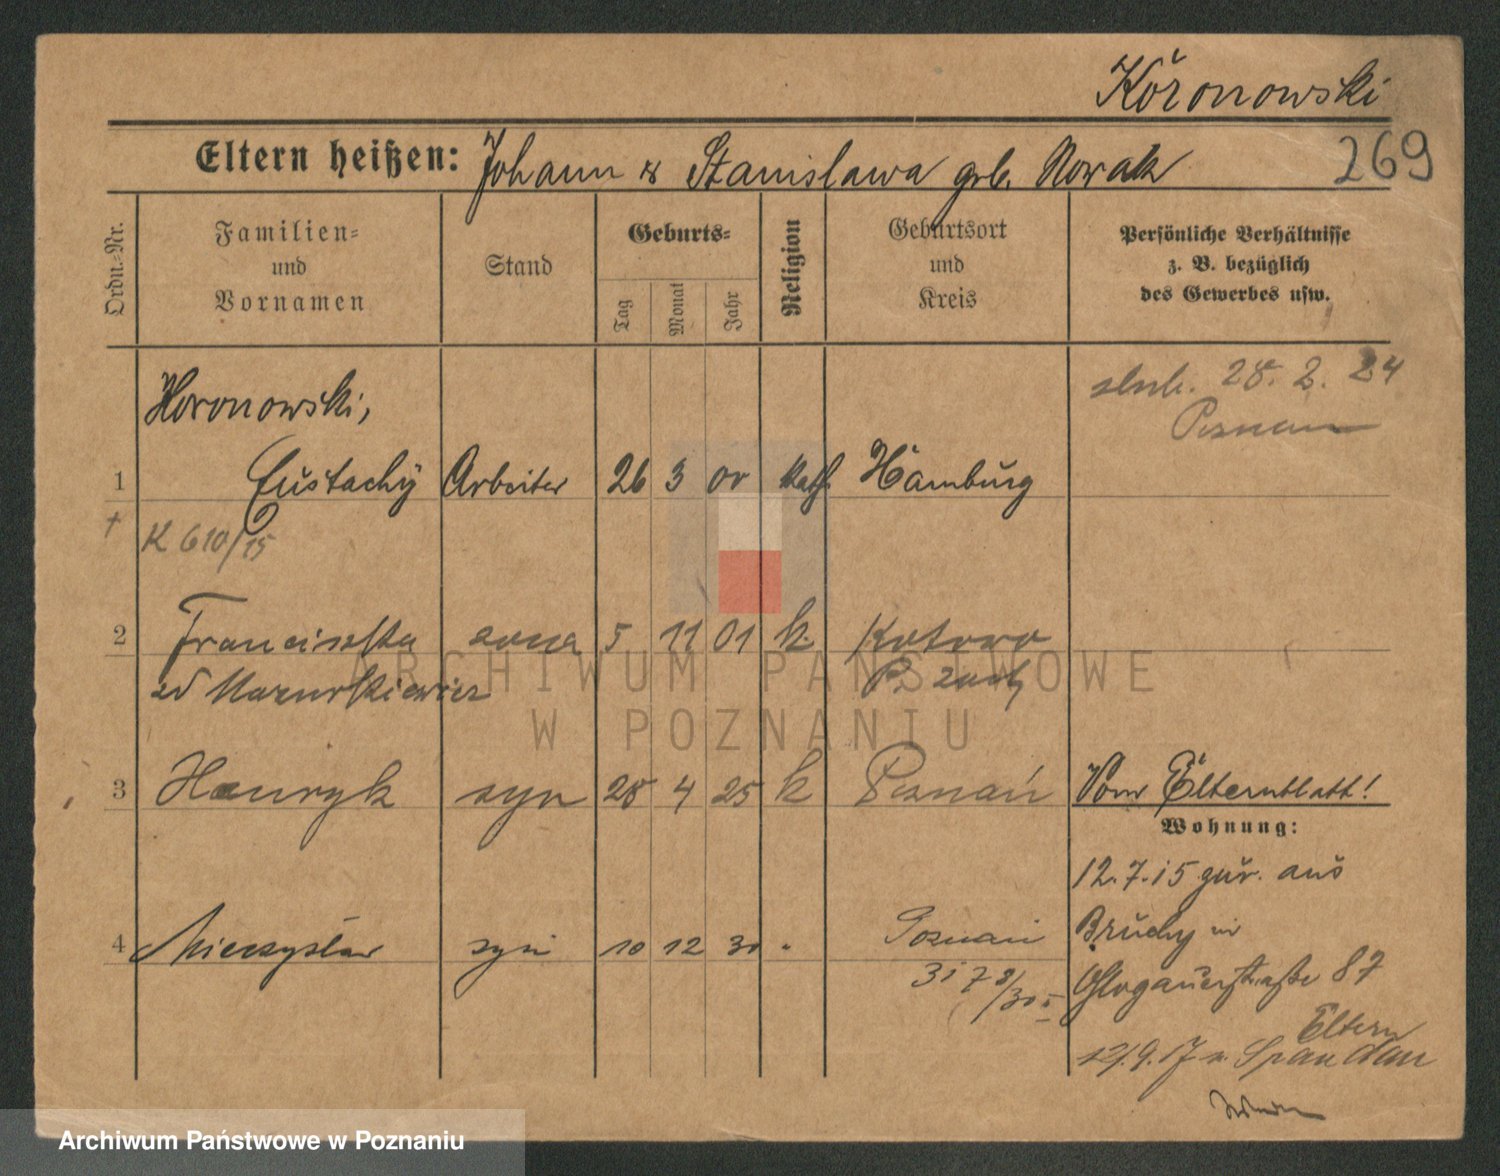 Koronowski
269
Eltern heißen: Johann & Stanislawa geb. Nowak
Ordn.-Nr.
Familien- und Vornamen
Stand
Geburts-
Tag
Monat
Jahr
Religion
Geburtsort und Kreis
Persönliche Verhältnisse
z. B. bezüglich
des Gewerbes usw.
ślub. 28. 2. 24
Poznań
Koronowski,
1 Eustachy Arbeiter 26 3 00 kath. Hamburg
† K 610/15
2 Franciszka żona 5 11 01 k.
zd Mazurkiewicz
3 Henryk syn 28 4 25 k Poznań Vom Elternblatt!
Wohnung:
12.7.15 zur. aus
4 Mieczysław syn 10 12 30 " Poznań Bruchy in
Glogauerstraße 87
Eltern
12.9.17 n. Spandau
ARCHIWUM PAŃSTWOWE
W POZNANIU
Archiwum Państwowe w Poznaniu